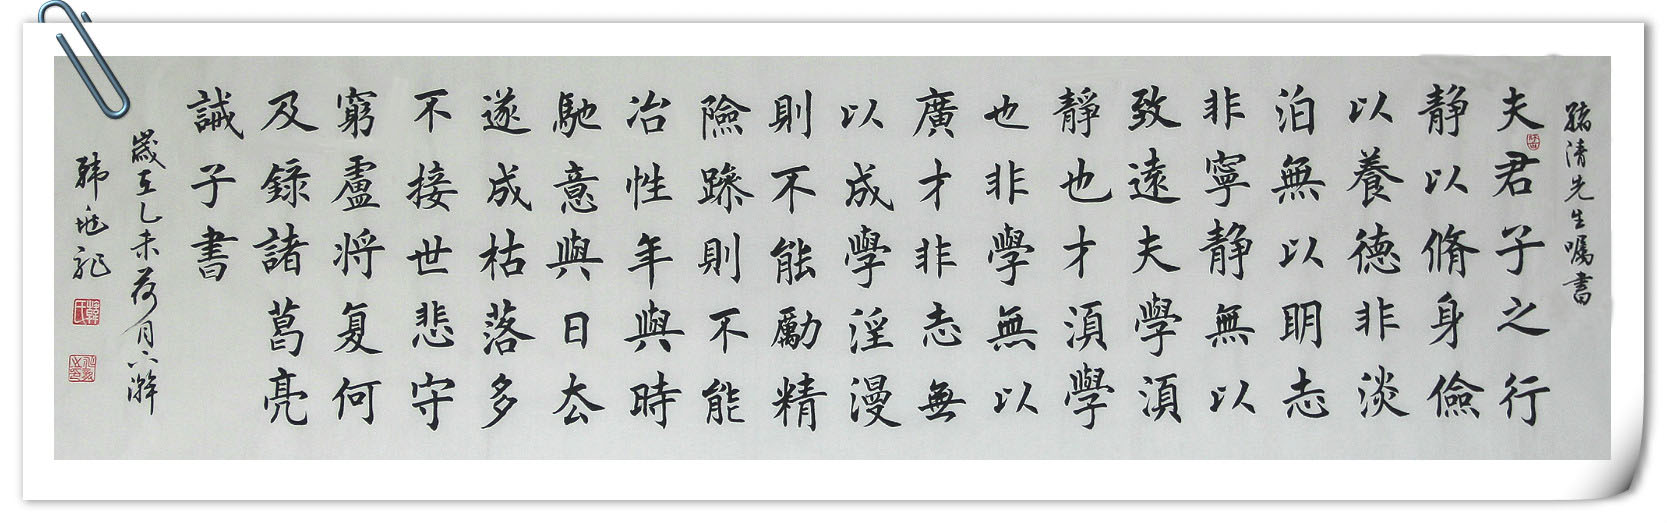 孫清先生嘱書
夫君子之行
静以脩身儉
以養德非淡
泊無以明志
非寧静無以
致遠夫學湏
靜也才湏學
也非學無以
廣才非志無
以成學淫漫
則不能勵精
險躁則不能
冶性年與時
馳意與日厺
遂成枯落多
不接世悲守
窮盧将复何
及録諸葛亮
誡子書
歲在乙未荷月下澣
韩兆
韓